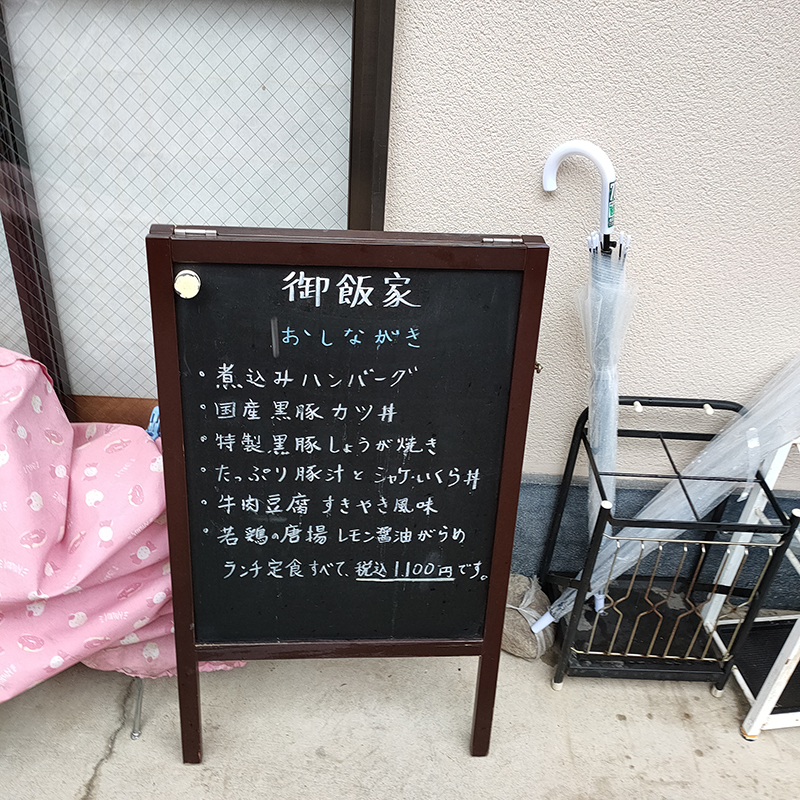 御飯家
おしながき
・煮込みハンバーグ
・国産黒豚カツ丼
・特製黒豚しょうが焼き
・たっぷり豚汁とシャケ・いくら丼
・牛肉豆腐すきやき風味
・若鶏の唐揚レモン醤油がらめ
ランチ定食すべて、税込1.100円です。